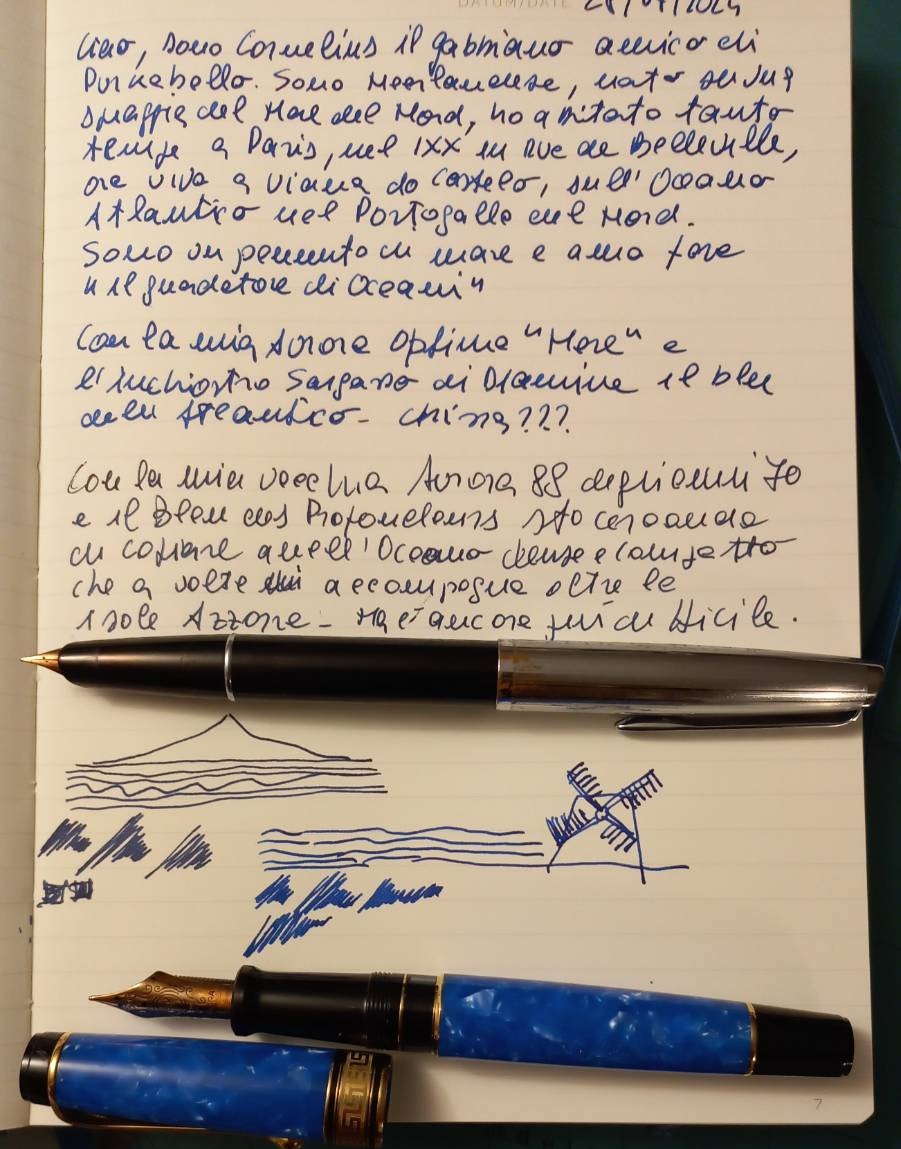 DATUM/DATE 28/07/2024
Ciao, sono Cornelius il gabbiano amico di
Pornabello. Sono Neerlandese, nato su una
spiaggia del Mare del Nord, ho abitato tanto
tempo a Paris, nel IXX in Rue de Belleville,
ora vivo a Viana do Castelo, sull'Oceano
Atlantico nel Portogallo del Nord.
Sono un pennuto di mare e amo fare
"il guardatore di Oceani"
Con la mia Aurora Optima "Mare" e
l'inchiostro Sargasso di Diamine il blu
dell'Atlantico - China???
Con la mia vecchia Aurora 88 degli anni 70
e il Bleu des Profondeurs sto cercando
di copiare quell'Oceano denso e compatto
che a volte mi accompagna oltre le
isole Azzorre - Ma è ancora più difficile.
7